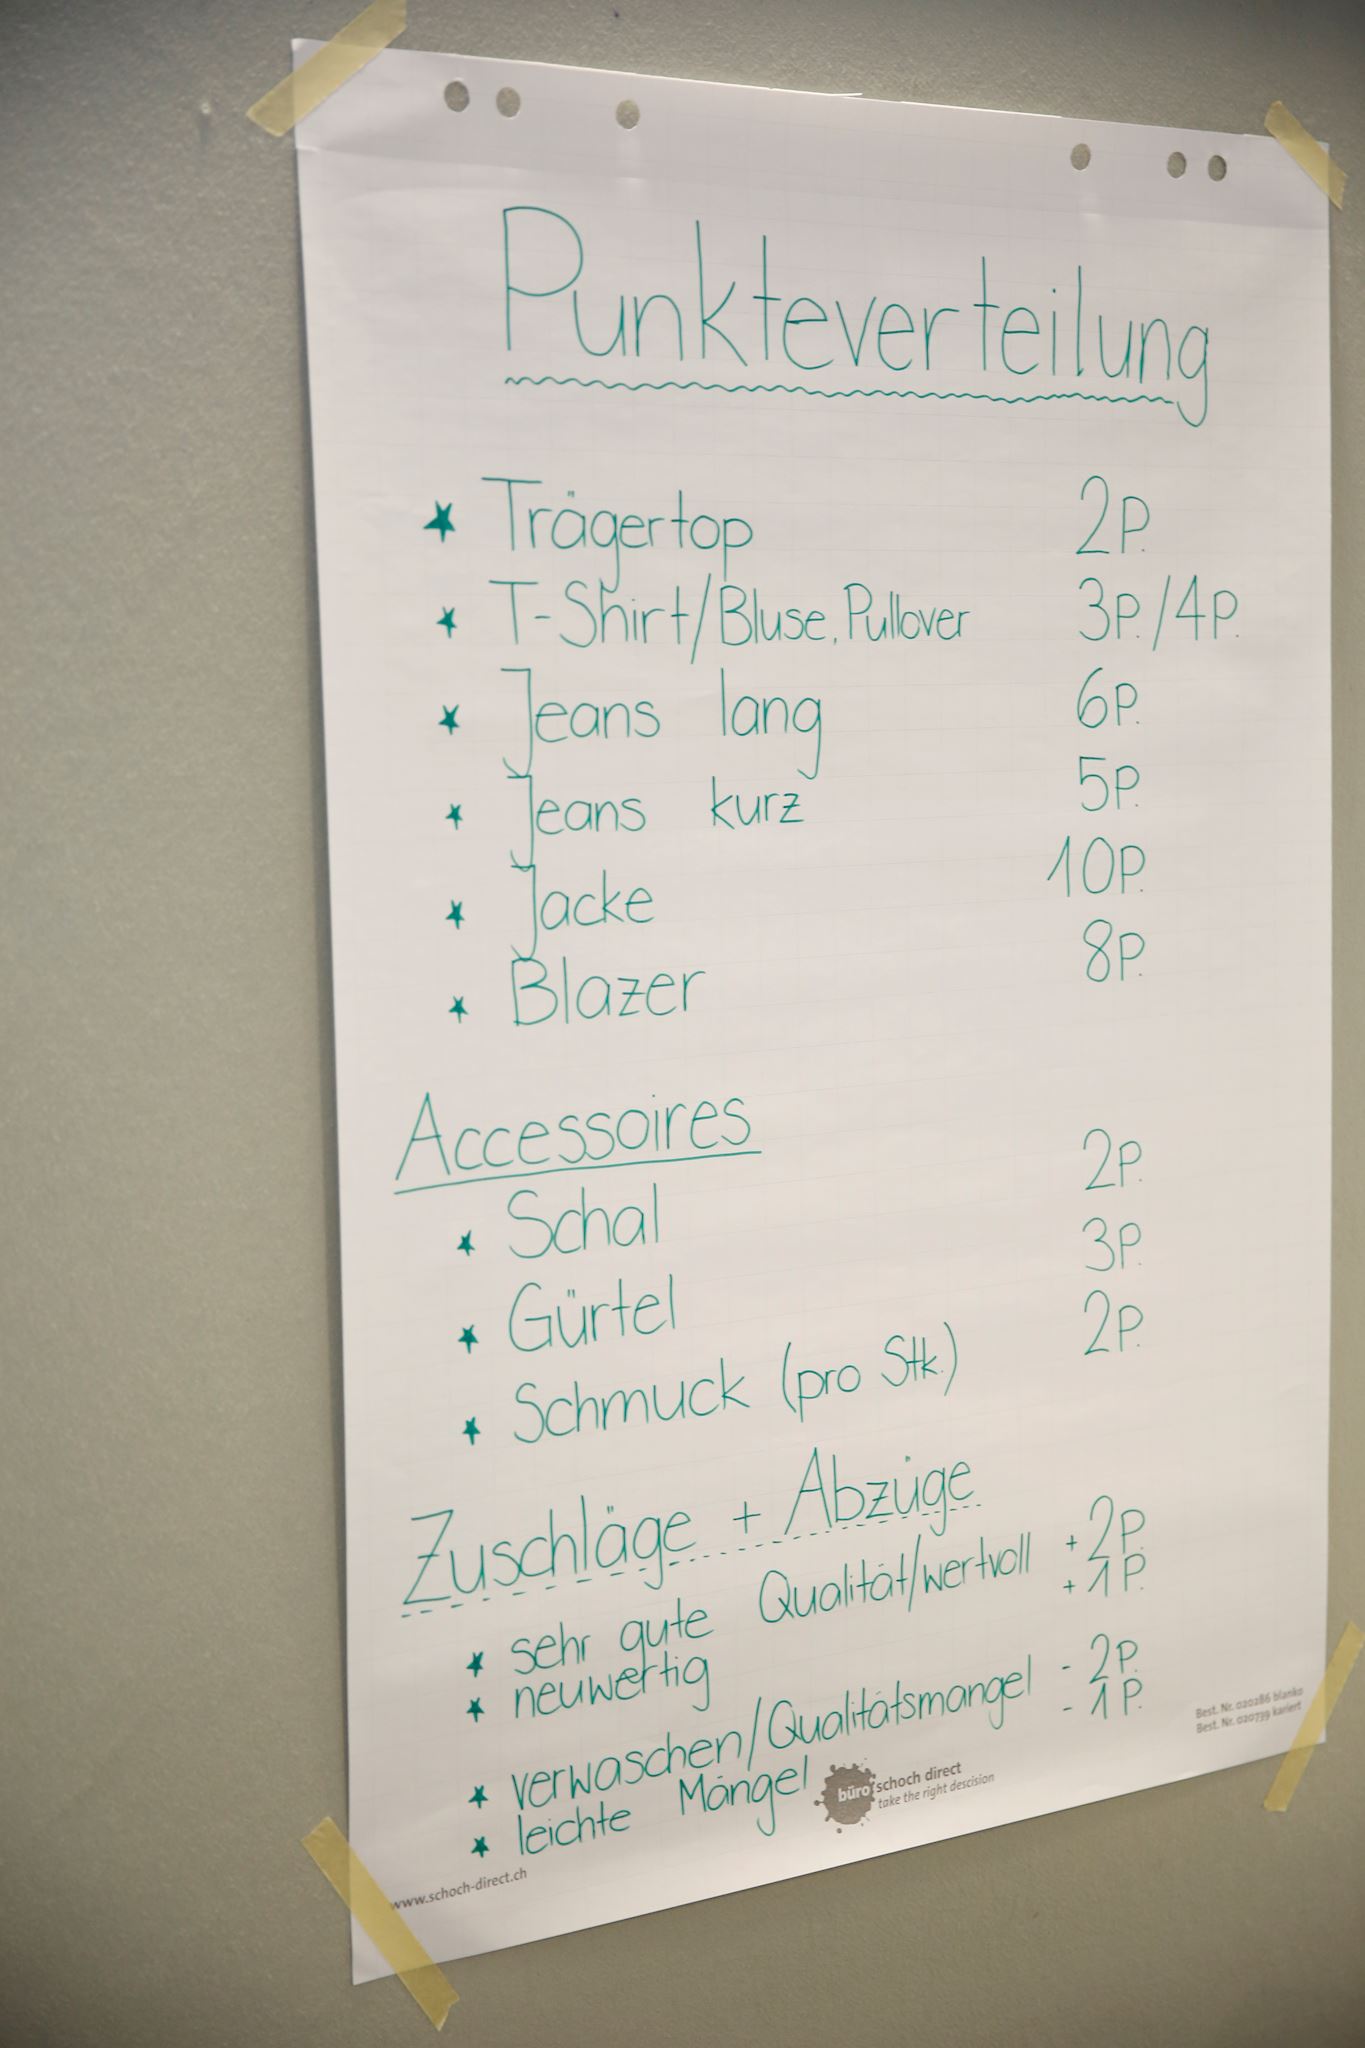 Punkteverteilung
Trägertop 2P.
T-Shirt/Bluse, Pullover 3P./4P.
Jeans lang 6P.
Jeans kurz 5P.
Jacke 10P.
Blazer 8P.
Accessoires
Schal 2P.
Gürtel 3P.
Schmuck (pro Stk.) 2P.
Zuschläge + Abzüge
sehr gute Qualität/wertvoll +2P.
neuwertig +1P.
verwaschen/Qualitätsmangel -2P.
leichte Mängel -1P.
Best. Nr. 020286 blanko
Best. Nr. 020739 kariert
büro schoch direct
take the right descision
www.schoch-direct.ch